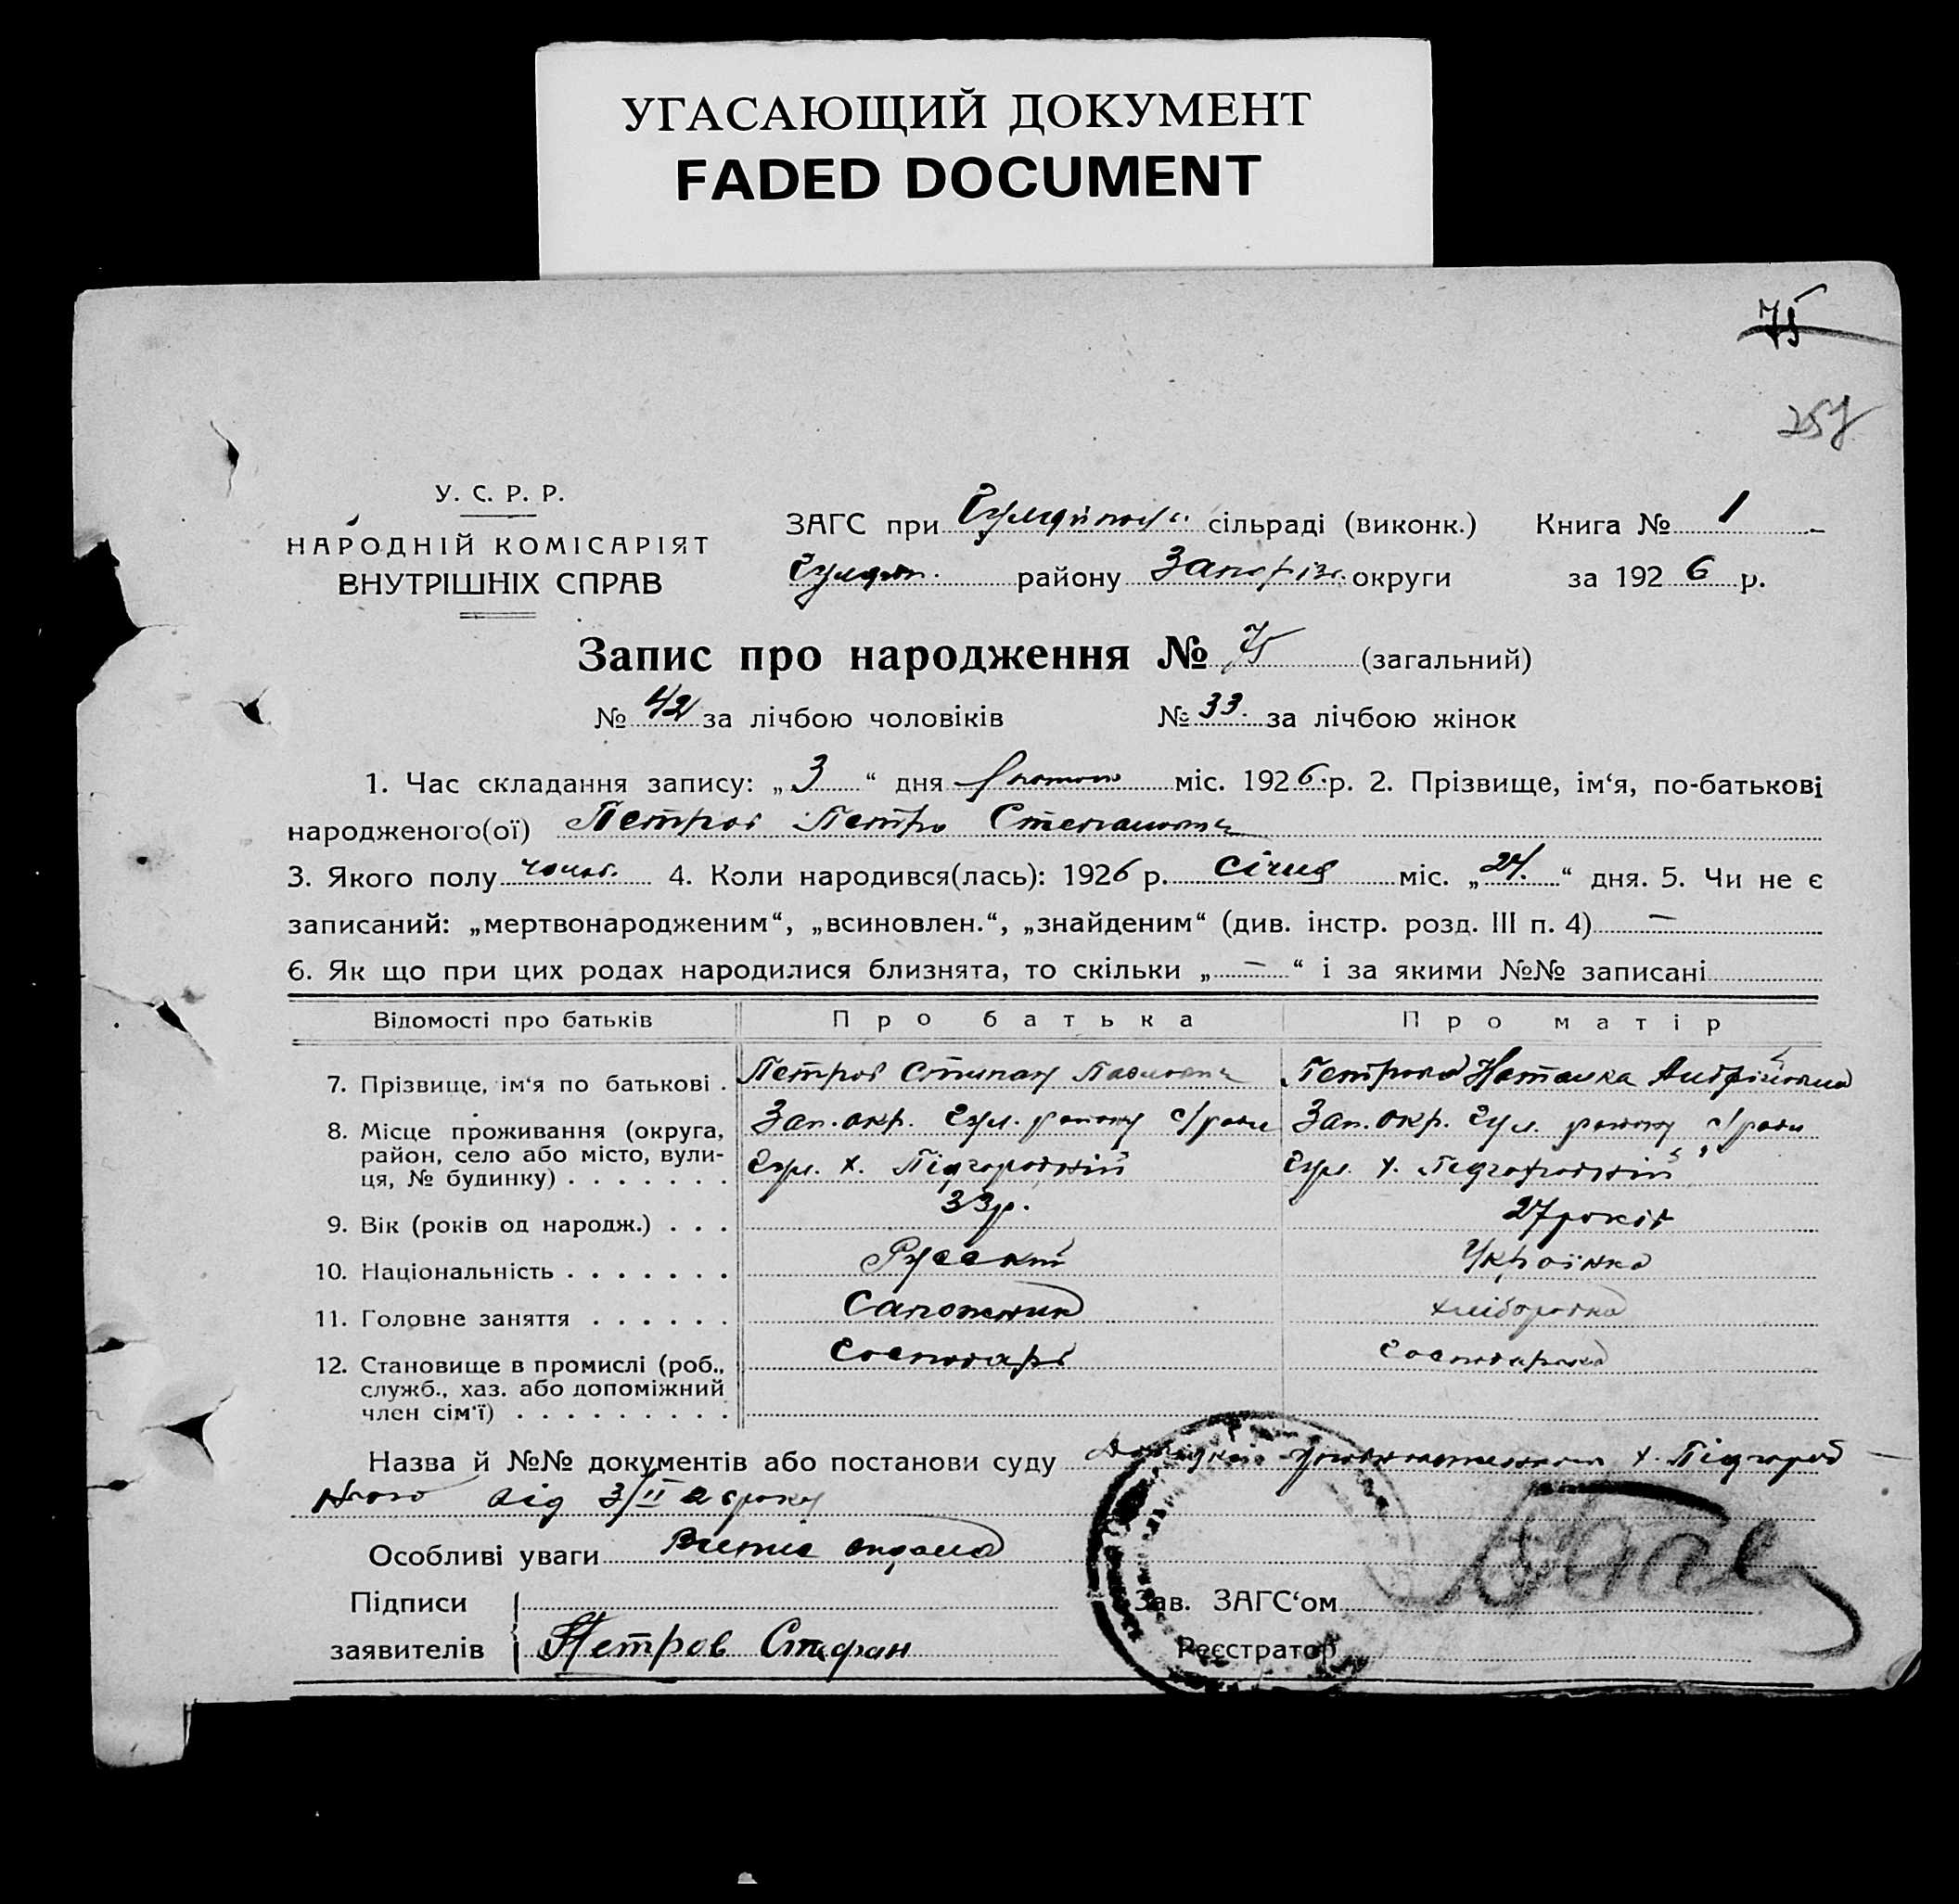 УГАСАЮЩИЙ ДОКУМЕНТ
FADED DOCUMENT
75
257
У. С. Р. Р.
НАРОДНІЙ КОМІСАРІЯТ
ВНУТРІШНІХ СПРАВ
ЗАГС при Гуляйпільс. сільраді (виконк.) Книга № 1
Гуляйп. району Запоріз. округи за 1926 р.
Запис про народження № 75 (загальний)
№ 42 за лічбою чоловіків № 33. за лічбою жінок
1. Час складання запису: „3“ дня лютого міс. 1926 р. 2. Прізвище, ім‘я, по-батькові
народженого(ої) Петров Петро Степанович
3. Якого полу чолов. 4. Коли народився(лась): 1926 р. січня міс. „24.“ дня. 5. Чи не є
записаний: „мертвонародженим“, „всиновлен.“, „знайденим“ (див. інстр. розд. III п. 4) —
6. Як що при цих родах народилися близнята, то скільки „—“ і за якими №№ записані
Відомості про батьків Про батька Про матір
7. Прізвище, ім‘я по батькові . Петров Степан Павлович Петрова Наталка Андріївна
8. Місце проживання (округа, Зап. окр. Гул. району с/ради Зап. окр. Гул. району с/ради
район, село або місто, вули- Гул. х. Підгородній Гул. х. Підгородній
ця, № будинку) . . . . . . .
9. Вік (років од народж.) . . . 33 р. 27 років
10. Національність . . . . . . . Русский Українка
11. Головне заняття . . . . . . Сапожник хліборобка
12. Становище в промислі (роб., Господарь Господарька
служб., хаз. або допоміжний
член сім‘ї) . . . . . . . . .
Назва й №№ документів або постанови суду Довідка уповноваженого х. Підгород-
нього від 3/II 26 року
Особливі уваги Витяг видана
Підписи
заявителів Петров Стефан
Зав. ЗАГС‘ом
Реєстратор